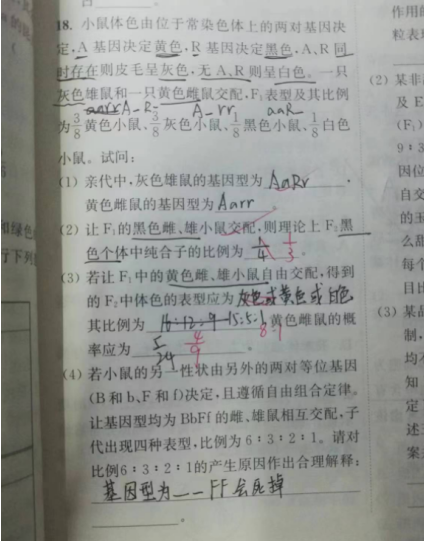 18. 小鼠体色由位于常染色体上的两对基因决
定,A 基因决定黄色,R 基因决定黑色,A、R 同
时存在则皮毛呈灰色,无 A、R 则呈白色。一只
灰色雄鼠和一只黄色雌鼠交配,F₁ 表型及其比例
A-R- A-rr aaR
为3/8黄色小鼠、3/8灰色小鼠、1/8黑色小鼠、1/8白色
小鼠。试问:
(1) 亲代中,灰色雄鼠的基因型为 AaRr ,
黄色雌鼠的基因型为 Aarr 。
(2) 让 F₁ 的黑色雌、雄小鼠交配,则理论上 F₂ 黑
色个体中纯合子的比例为 1/3 。
(3) 若让 F₁ 中的黄色雌、雄小鼠自由交配,得到
的 F₂ 中体色的表型应为 黄色或白色
其比例为 8:1 ,黄色雌鼠的概
率应为 5/24 4/9 。
(4) 若小鼠的另一性状由另外的两对等位基因
(B 和 b、F 和 f)决定,且遵循自由组合定律。
让基因型均为 BbFf 的雌、雄鼠相互交配,子
代出现四种表型,比例为 6∶3∶2∶1。请对
比例6∶3∶2∶1的产生原因作出合理解释:
基因型为__FF会死掉
作用
粒表
(2) 某非
及 E
(F₁)
9∶3
因位
自交
的玉
么甜
每个
目比
(3) 某
制,
均不
知
定
述
案